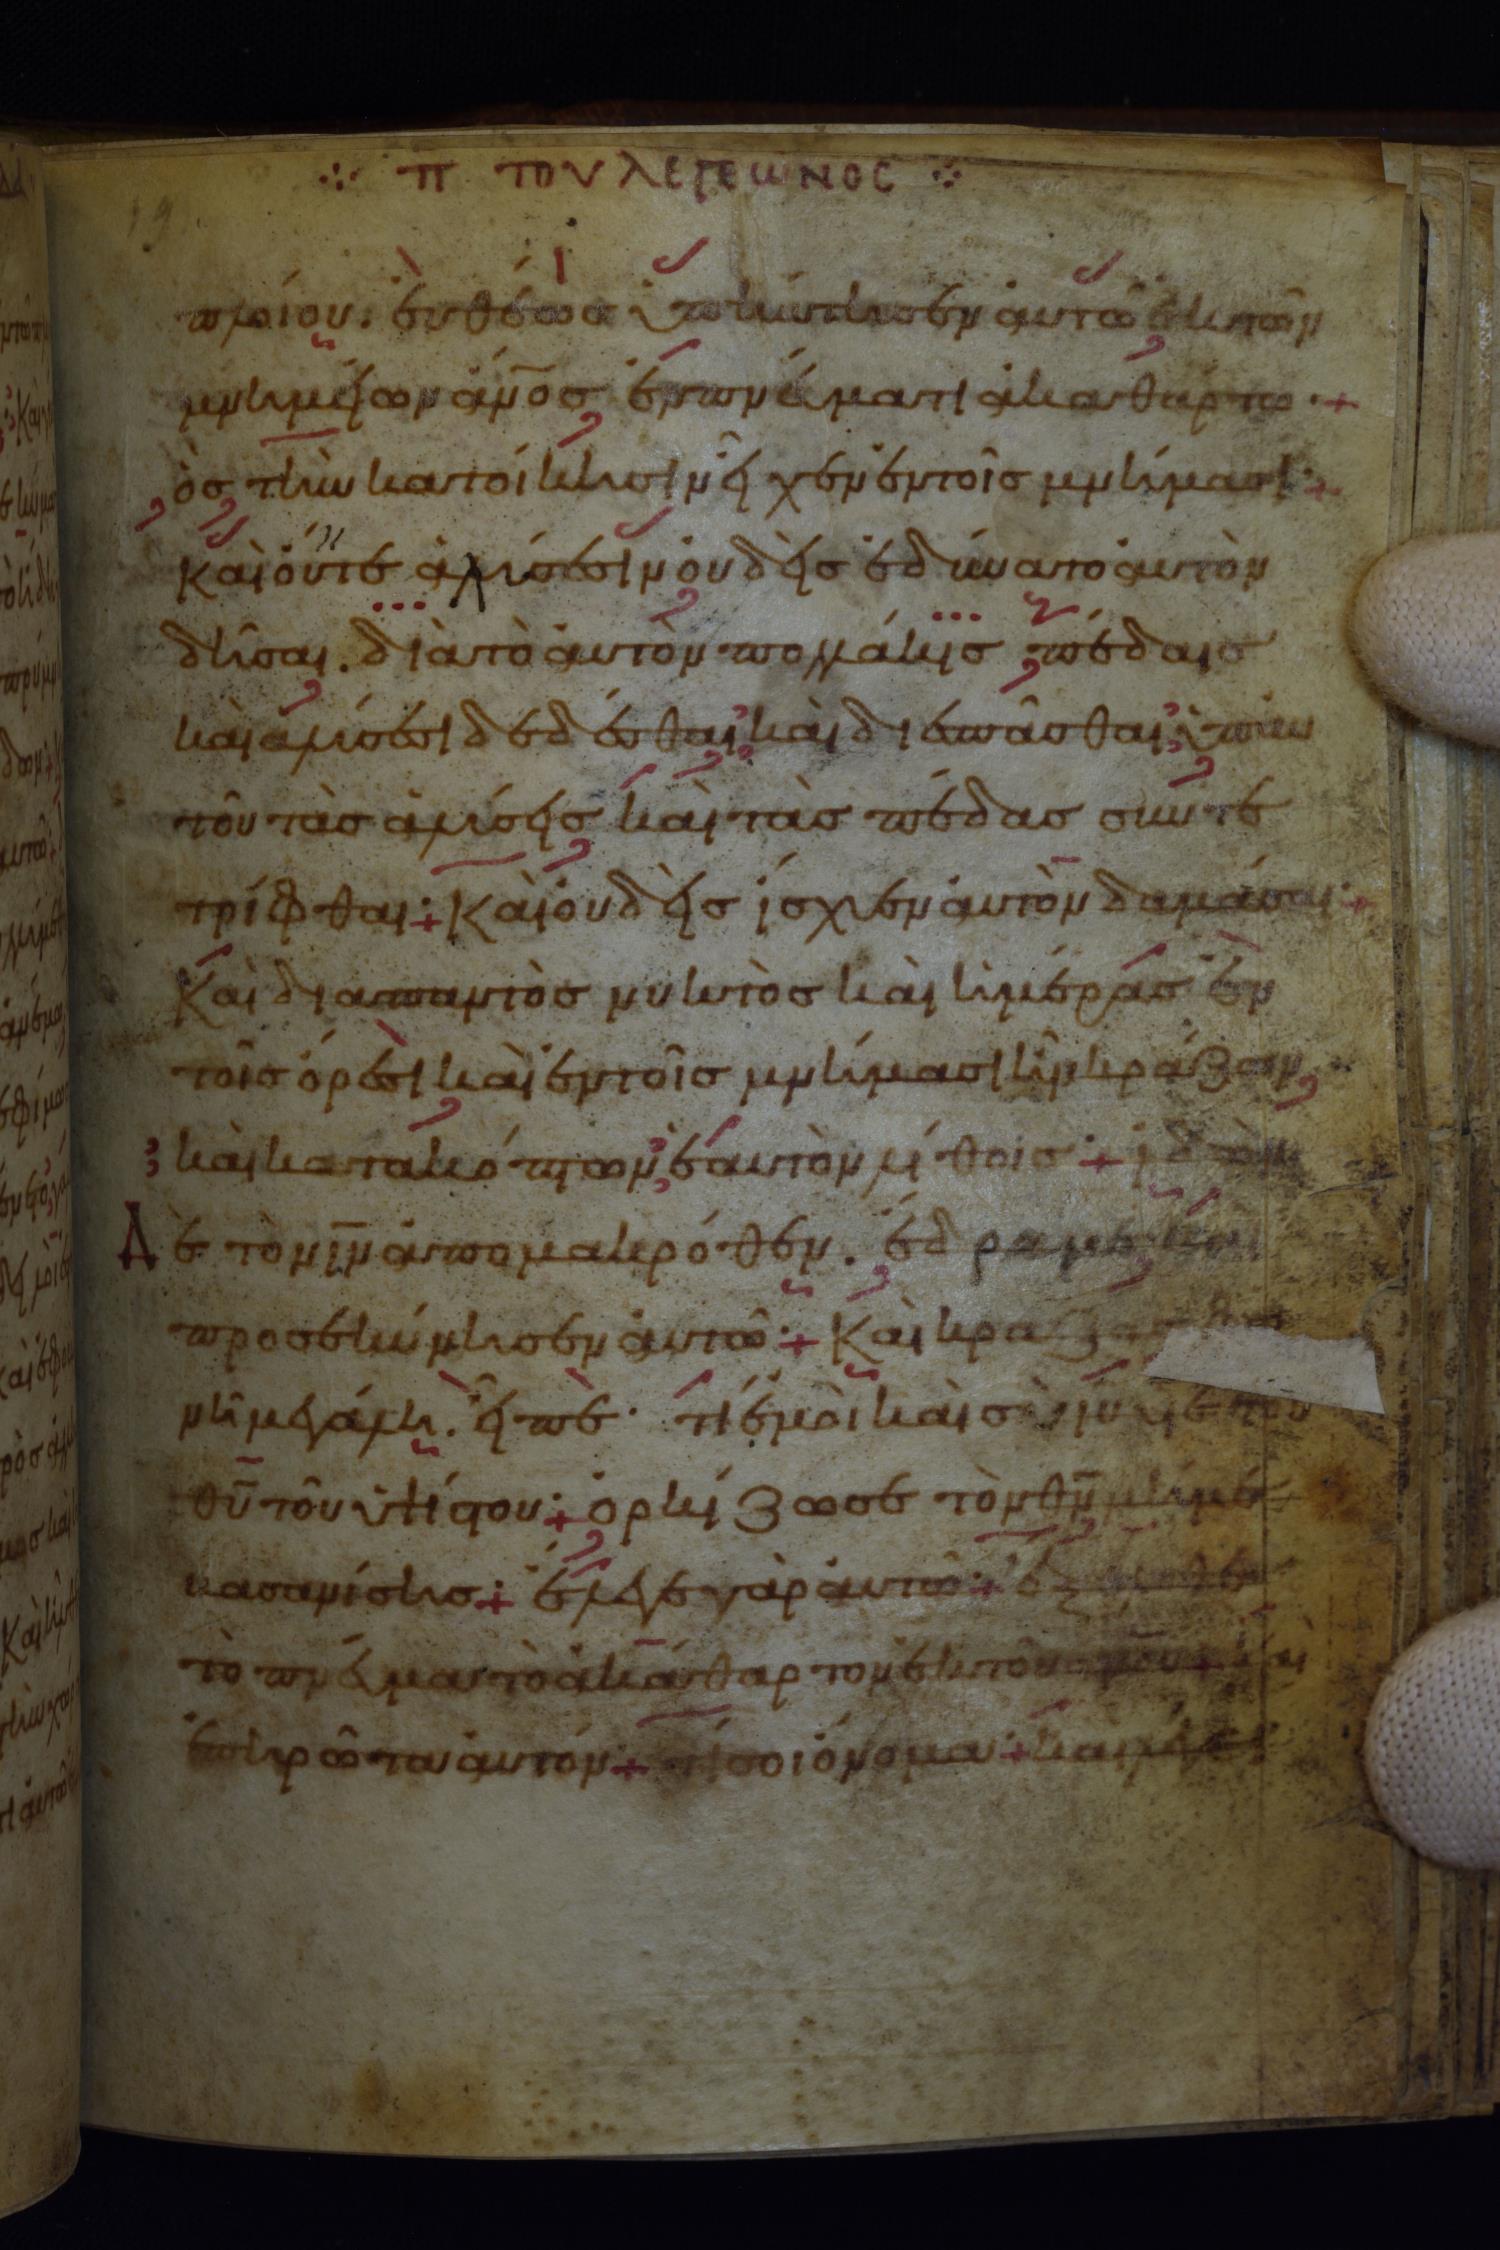 π του λεγεωνος
πλοίου. ἐυθέωσ ὑπήντησεν ἀυτῶ ἐκτῶν
μνημείων ἀν̅οσ ἐνπνέυματι ἀκαθάρτω·+
ὃσ τὴν κατοίκησιν εἶχεν ἐντοῖσ μνήμασι·+
Καὶ ὄυτε ἁλύσεσιν ὀυδεὶσ ἐδύνατο ἀυτὸν
δῆσαι. διὰτὸ ἀυτὸν πολλάκισ πέδαισ
καὶ ἁλύσεσι δεδέσθαι καὶ διεσπᾶσθαι ὑπ' ἀυ
τοῦ τὰσ ἁλύσεισ καὶ τὰσ πέδασ συντε
τρίφθαι·+ Καὶ ὀυδεὶσ ἴσχυεν ἀυτὸν δαμάσαι·+
Καὶ διαπαντὸσ νυκτὸσ καὶ ἡμέρασ ἐν
τοῖσ ὄρεσι καὶ ἐντοῖσ μνήμασι ἦν κράζων
καὶ κατακόπτων ἑαυτὸν λίθοισ·+ ἰδὼν
Δὲ τὸν ι̅ν ἀπομακρόθεν. ἔδραμε καὶ
προσεκύνησεν ἀυτῶ·+ Καὶ κράξασ φω
νῆ μεγάλη. εἶπε· τί ἐμοὶ καὶ σοὶ ἰ̅υ υἱὲ τοῦ
θ̅υ τοῦ ὑψίστου·+ ὁρκίζω σε τὸν θ̅ν μή με
βασανίσησ·+ ἔλεγε γὰρ ἀυτῶ·+ ἔξελθε
τὸ πνέυμα τὸ ἀκάθαρτον ἐκτοῦ ἀν̅ου·+ καὶ
ἐπηρῶτα ἀυτόν·+ τί σοι ὄνομα·+ καὶ λέγει